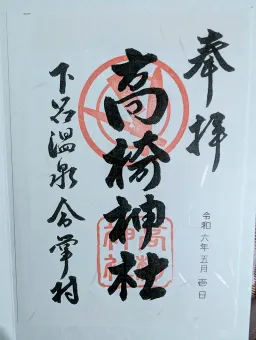 奉拝
高椅神社
下呂温泉合掌村
令和六年五月吉日